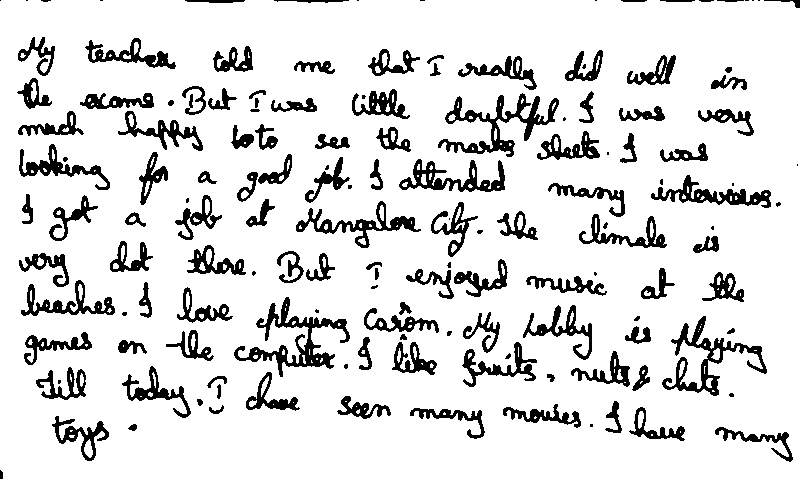 My teacher told me that I really did well in
the exams. But I was little doubtful. I was very
much happy to to see the marks sheets. I was
looking for a good job. I attended many interviews.
I got a job at Mangalore City. The climate is
very hot there. But I enjoyed music at the
beaches. I love playing Carom. My hobby is playing
games on the computer. I like fruits, nuts & chats.
Till today, I have seen many movies. I have many
toys.